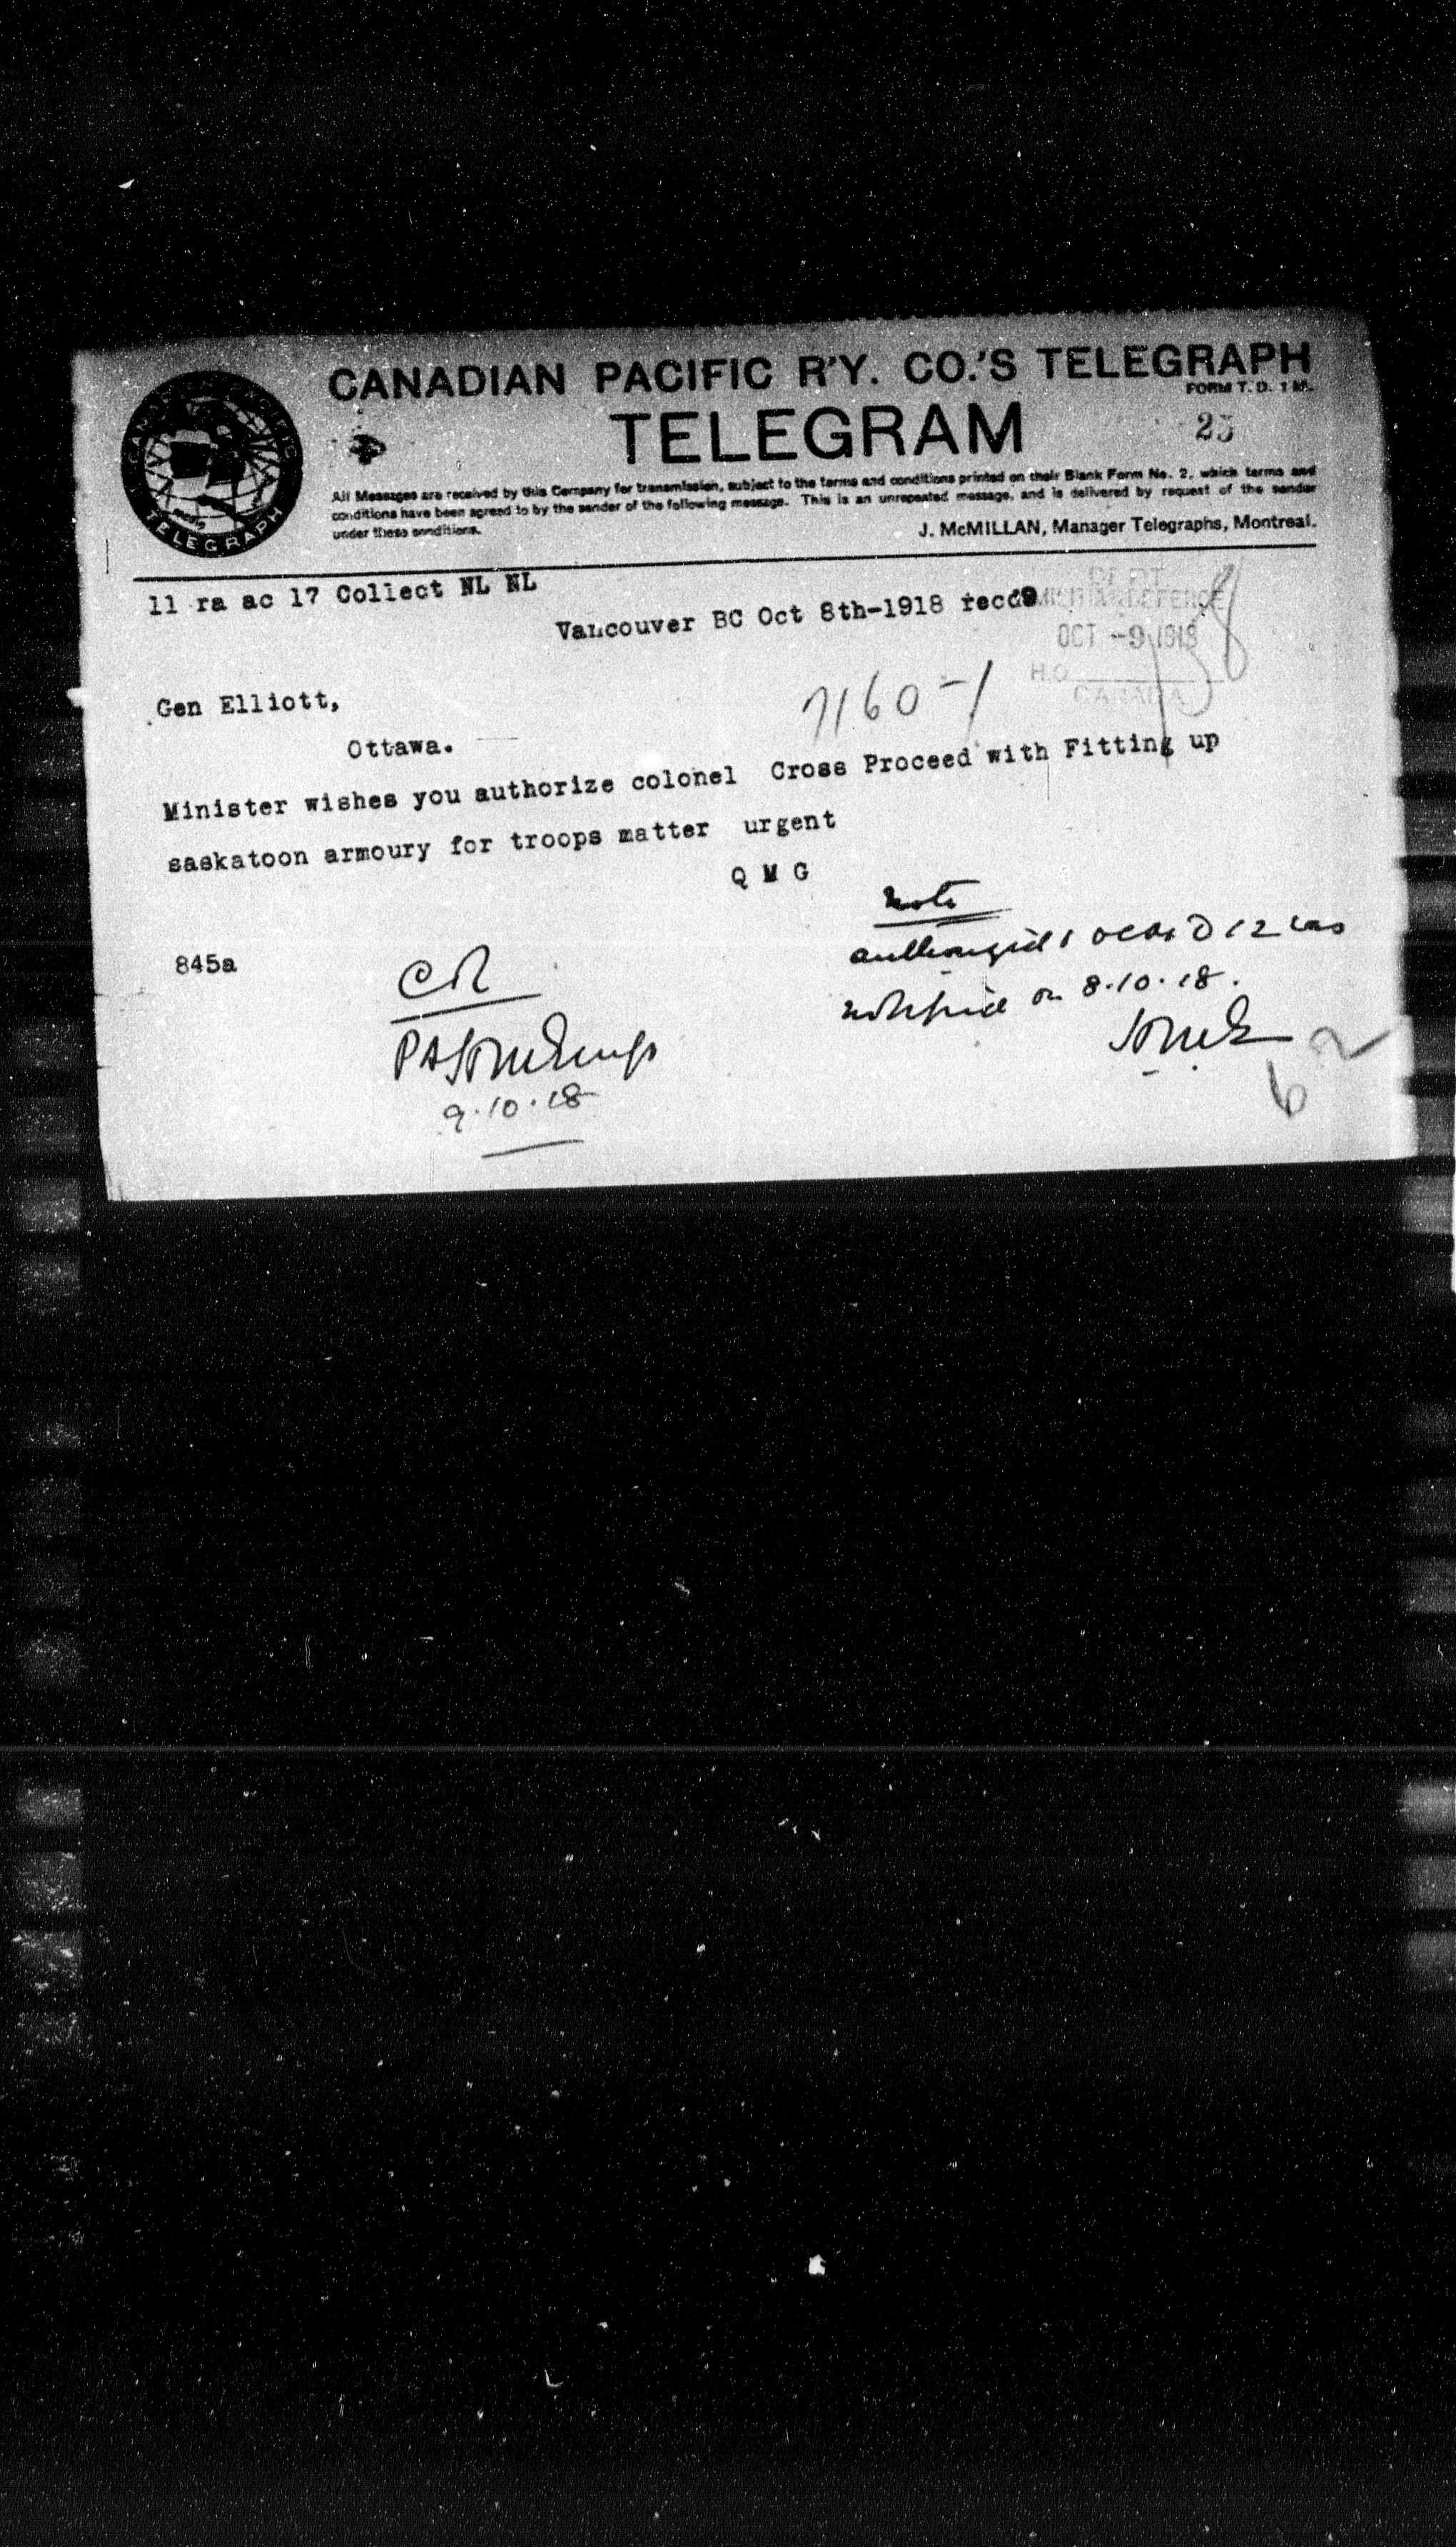 CANADIAN PACIFIC R'Y. CO.'S TELEGRAPH
FORM T. D. 1 M.
TELEGRAM
23
All Messages are received by this Company for transmission, subject to the terms and conditions printed on their Blank Form No. 2, which terms and
conditions have been agreed to by the sender of the following message. This is an unrepeated message, and is delivered by request of the sender
under these conditions.
J. McMILLAN, Manager Telegraphs, Montreal.
TELEGRAPH
11 ra ac 17 Collect NL NL
Vancouver BC Oct 8th-1918 recd 9
DEPT
MILITIA & DEFENCE
OCT -9 1918
H.Q.
CANADA
Gen Elliott,
7160-1
Ottawa.
Minister wishes you authorize colonel Cross Proceed with Fitting up
saskatoon armoury for troops matter urgent
Q M G
Note
845a
CR
notified on 8.10.18.
PA
9.10.18